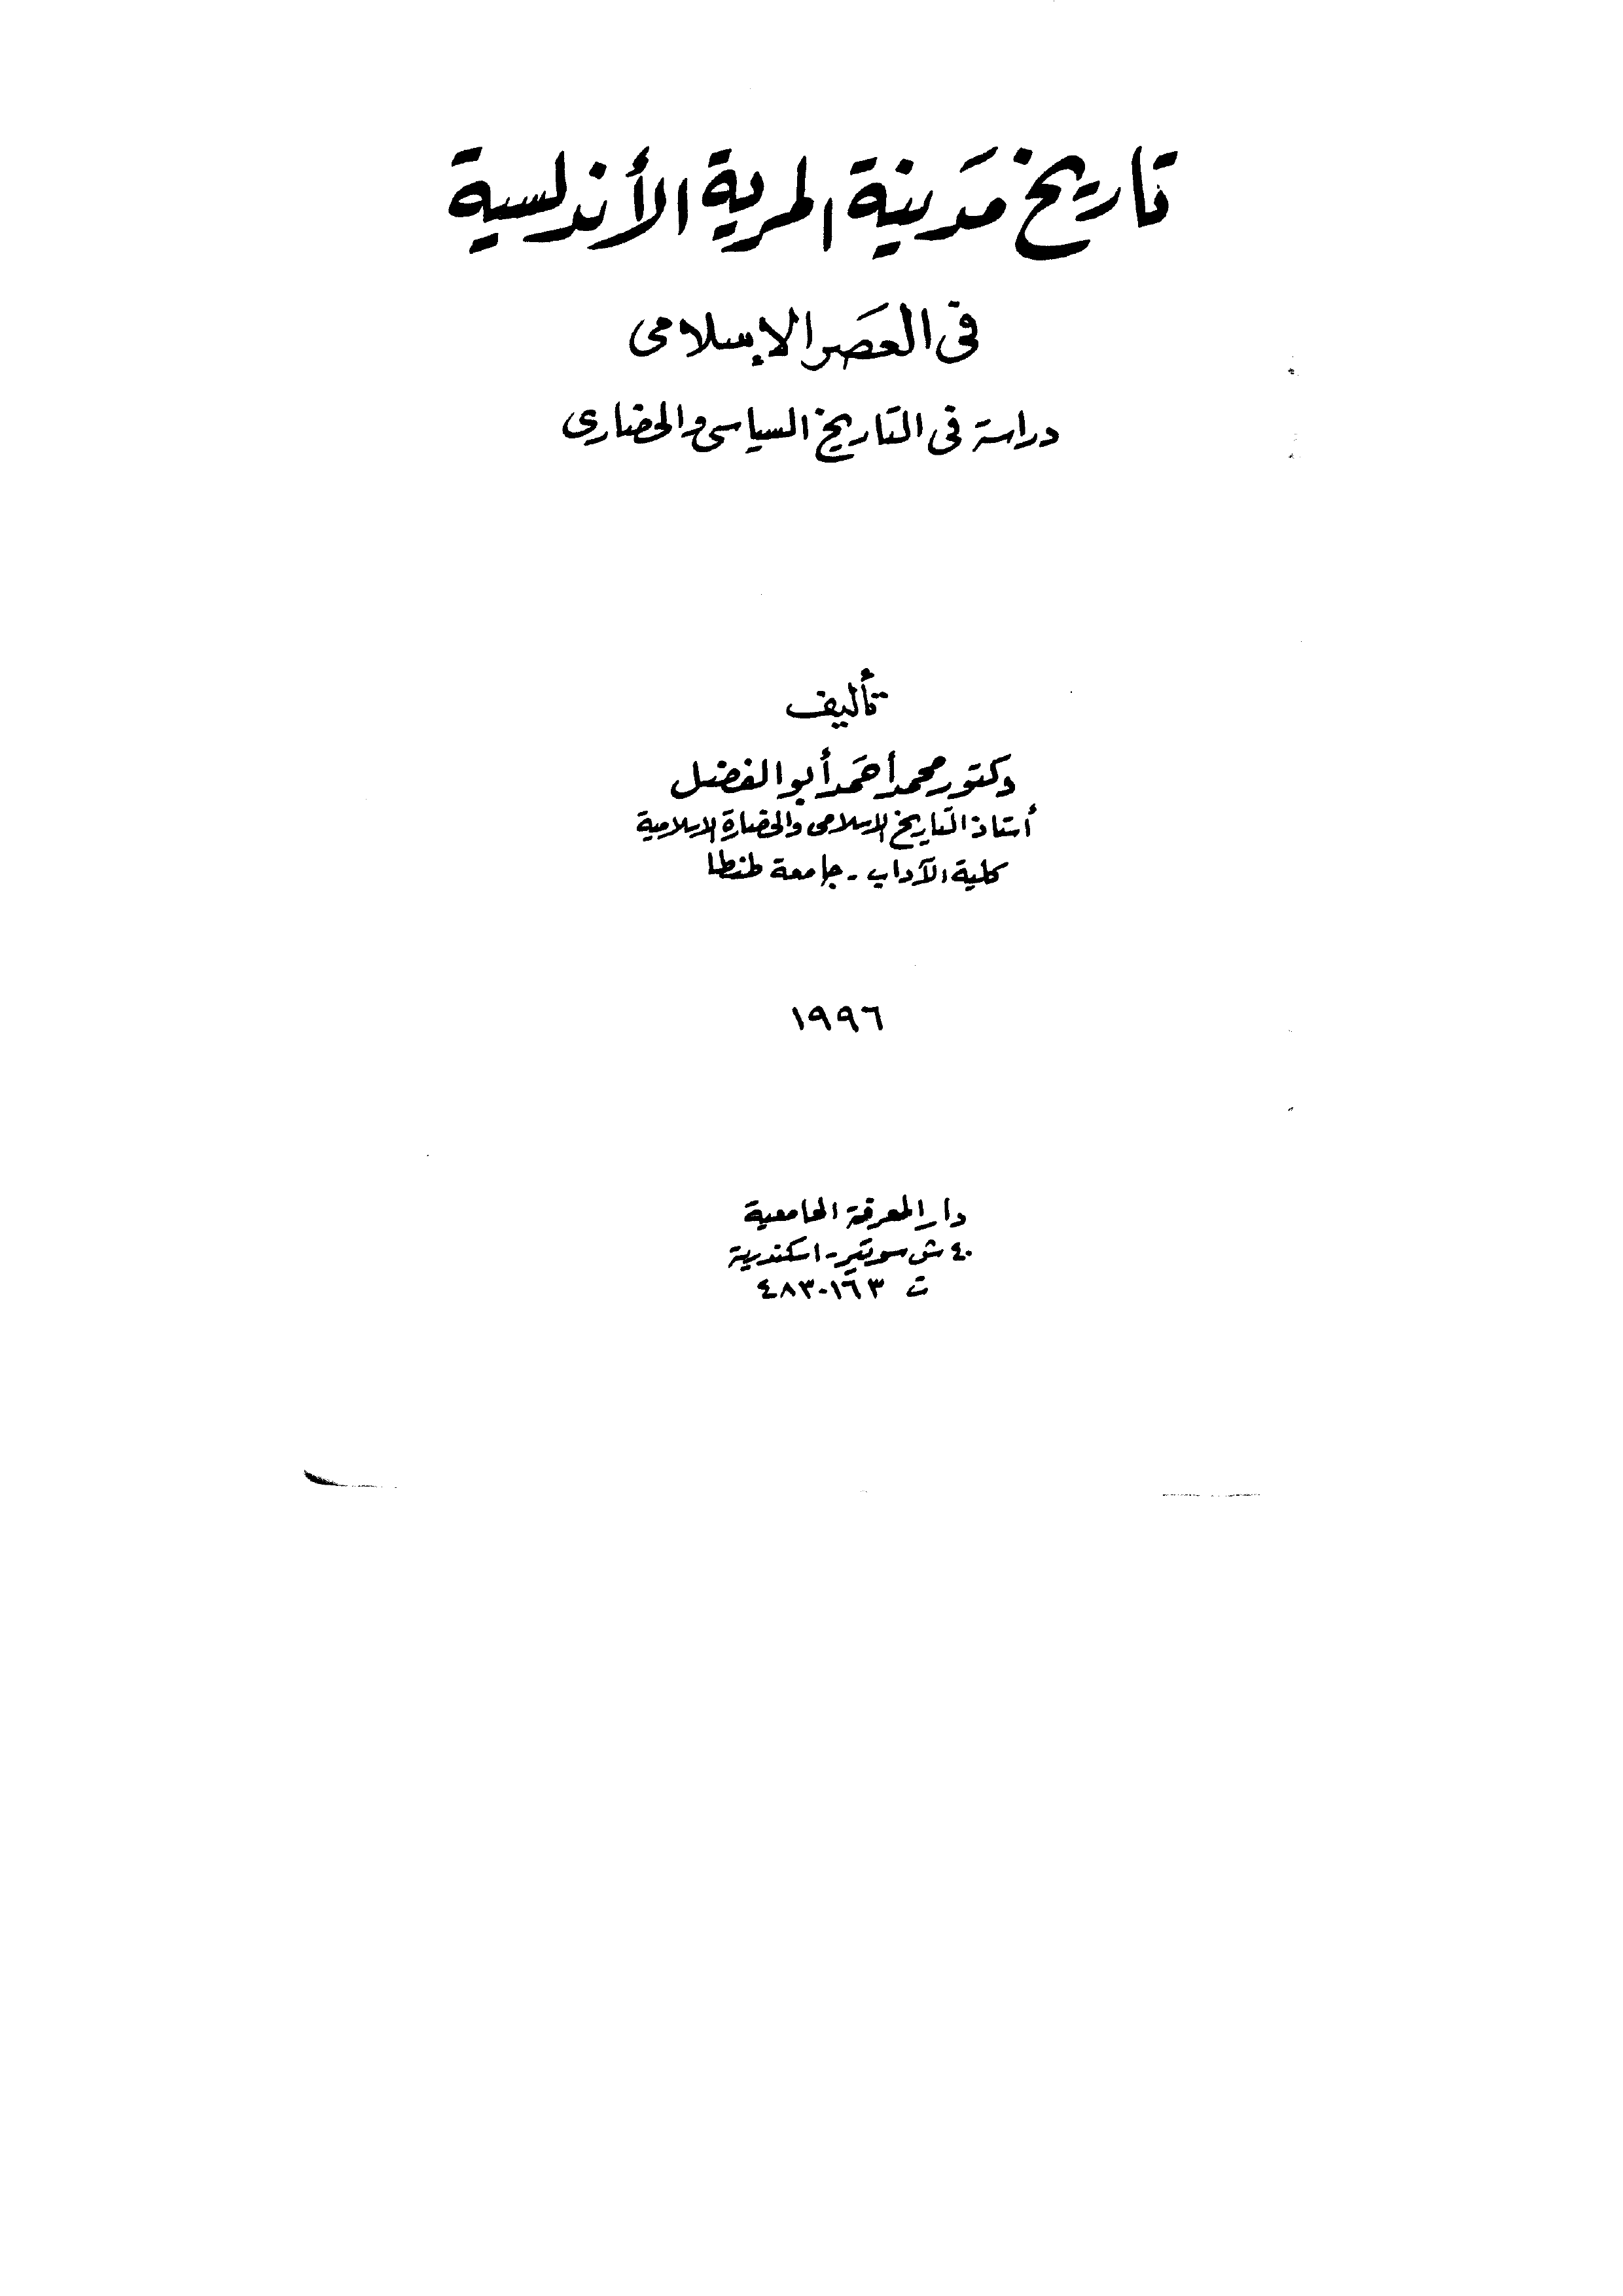 تاريخ مَدينة المرية الأندلسية
فى العصَر الإسلامى
دراسة فى التاريخ السياسى والحضارى
تأليف
دكتور محمد أحمَد أبو الفضل
أستاذ التاريخ الإسلامى والحضارة الإسلامية
كلية الآداب - جامعة طنطا
١٩٩٦
دار المعرفة الجامعية
٤٠ ش سوتير - اسكندرية
ت ٤٨٣٠١٦٣